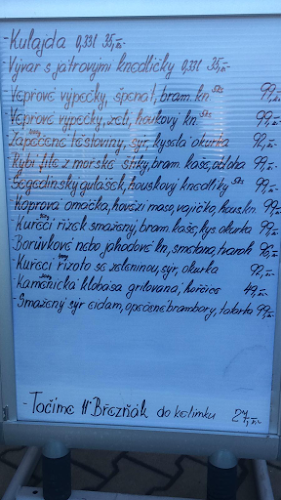 - Kulajda 0,33l 35,-
- Vývar s játrovými knedlíčky 0,33l 35,-
- Vepřové výpečky, špenát, bram. kn 99,-
- Vepřové výpečky, zelí, houskový kn 99,-
- Zapečené těstoviny, sýr, kyselá okurka 92,-
- Rybí filé z mořské štiky, bram. kaše, obloha 99,-
- Segedínský gulášek, houskový knedlíky 99,-
- Koprová omáčka, hovězí maso, vajíčko, housk. kn 99,-
- Kuřecí řízek smažený, bram. kaše, kys okurka 99,-
- Borůvkové nebo jahodové kn, smetana, tvaroh 96,-
- Kuřecí rizoto se zeleninou, sýr, okurka 92,-
- Kamenická klobása grilovaná, hořčice 49,-
- Smažený sýr eidam, opečené brambory, tatarka 99,-
- Točíme 11° Březňák do kelímku 27,-